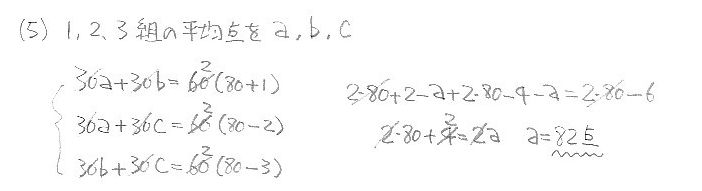 (5) 1, 2, 3 組の平均点を a, b, c
30a+30b=60²(80+1)
30a+30c=60²(80-2)
30b+30c=60²(80-3)
2·80+2-a+2·80-4-a=2·80-6
2·80+4²=2a a=82点